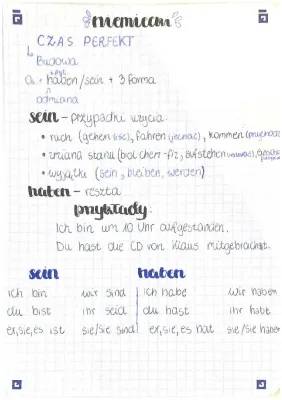 niemiecki
CZAS PERFEKT
Budowa
haben/sein + 3 forma
odmiana
sein - przypadki użycia
• ruch (gehen iść), fahren (jechać), kommen
• zmiana stanu (biol. chem-fiz, aufstehen
• wyjątki (sein, bleiben, werden)
haben - reszta
przykłady:
Ich bin um 10 Uhr aufgestanden.
Du hast die CD von Klaus mitgebracht.
sein haben
ich bin wir sind ich habe wir haben
du bist ihr seid du hast ihr habt
er,sie,es ist sie/Sie sind er,sie,es hat sie/Sie haben